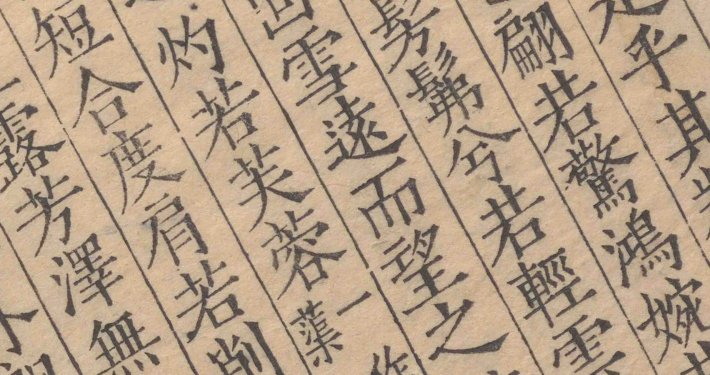 乎其
翩若驚鴻婉
髣髴兮若輕雲
回雪遠而望之
灼若芙蓉一作蕖
短合度肩若削
露芳澤無